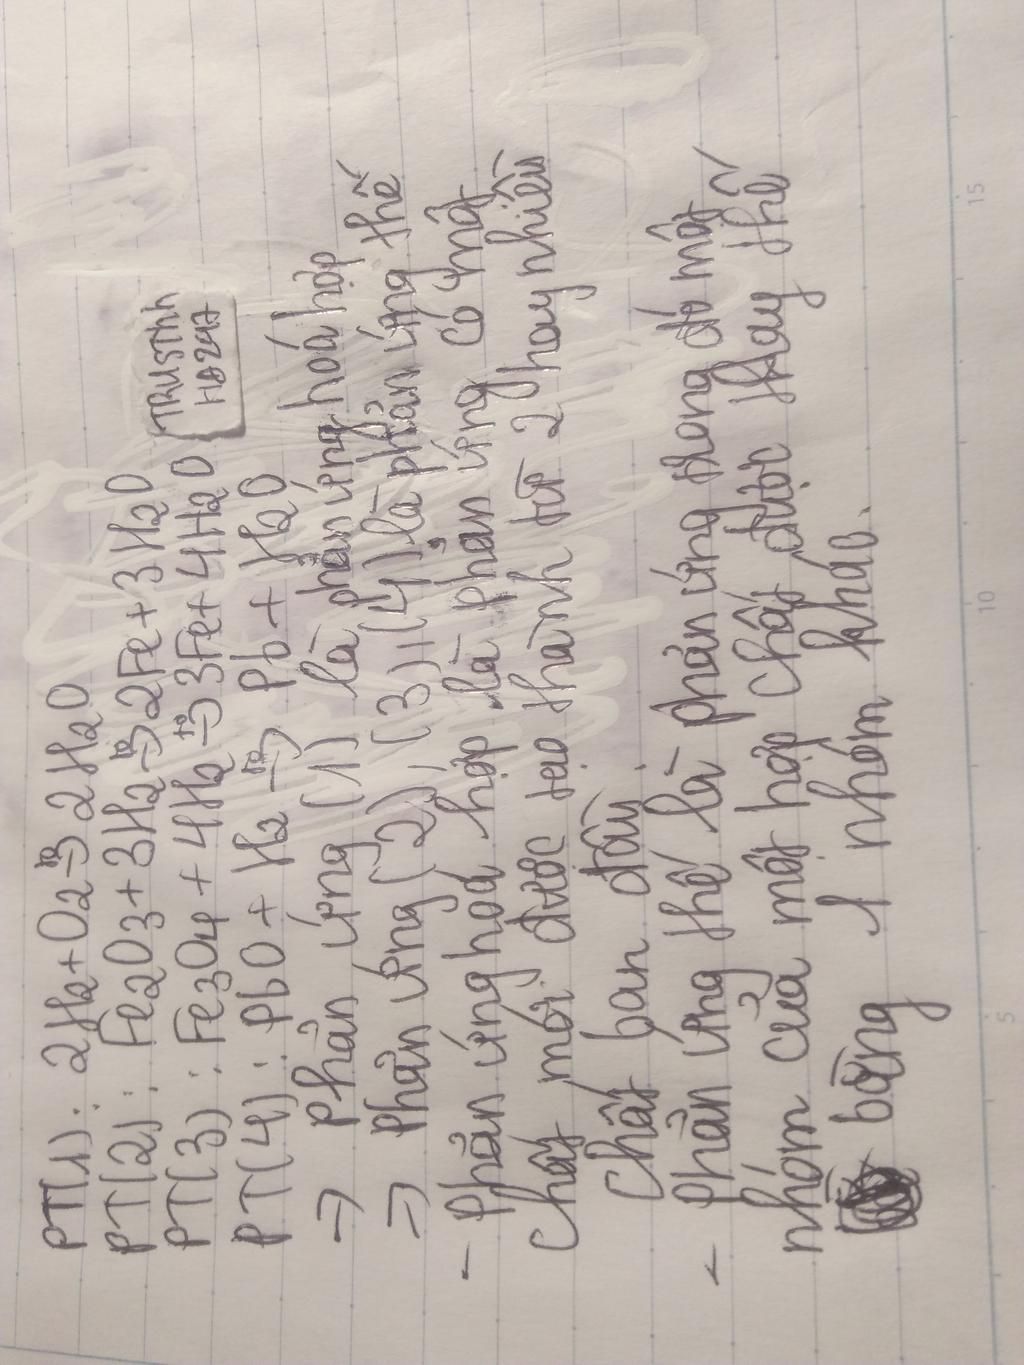 PT(1): 2H2+O2 t° → 2H2O
PT(2): Fe2O3+3H2 t° → 2Fe+3H2O
PT(3): Fe3O4+4H2 t° → 3Fe+4H2O
PT(4): PbO+H2 t° → Pb+H2O
TRUSTNH
HD247
=> Phản ứng (1) là phản ứng hoá hợp
=> Phản ứng (2), (3), (4) là phản ứng thế
- Phản ứng hoá hợp là phản ứng có một
chất mới được tạo thành từ 2 hay nhiều
chất ban đầu.
- Phản ứng thế là phản ứng trong đó một
nhóm của một hợp chất được thay thế
bằng 1 nhóm khác.